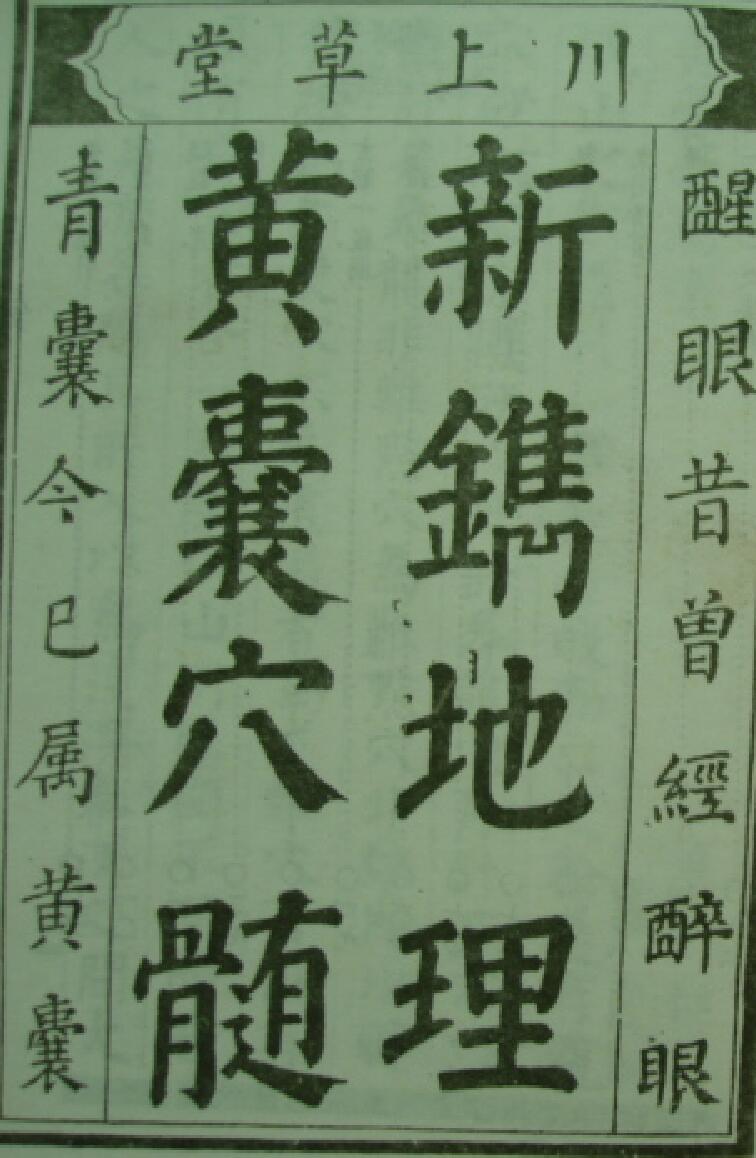 川上草堂
醒眼昔曾經醉眼
新鐫地理
黄囊穴髓
青囊今已属黄囊